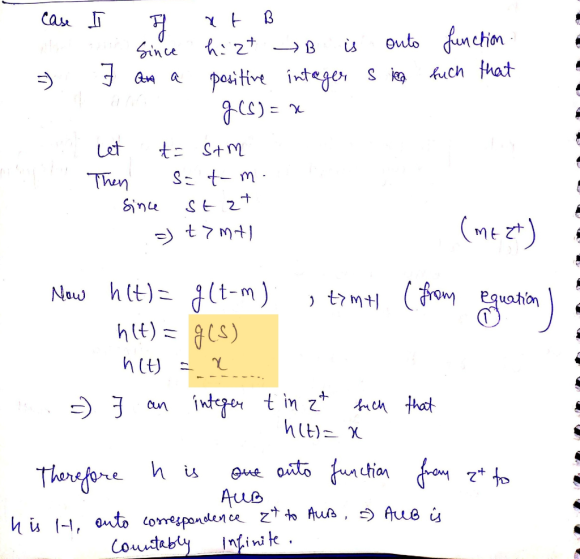 Case II If x ∈ B
Since h: z⁺ → B is onto function.
⇒ ∃ a positive integer s such that
g(s) = x
Let t = s+m
Then s = t-m.
Since s ∈ z⁺
⇒ t > m+1 (m ∈ z⁺)
Now h(t) = g(t-m) , t > m+1 (from equation ①)
h(t) = g(s)
h(t) = x
⇒ ∃ an integer t in z⁺ such that
h(t) = x
Therefore h is onto function from z⁺ to
AUB
h is 1-1, onto correspondence z⁺ to AUB. ⇒ AUB is
Countably Infinite.